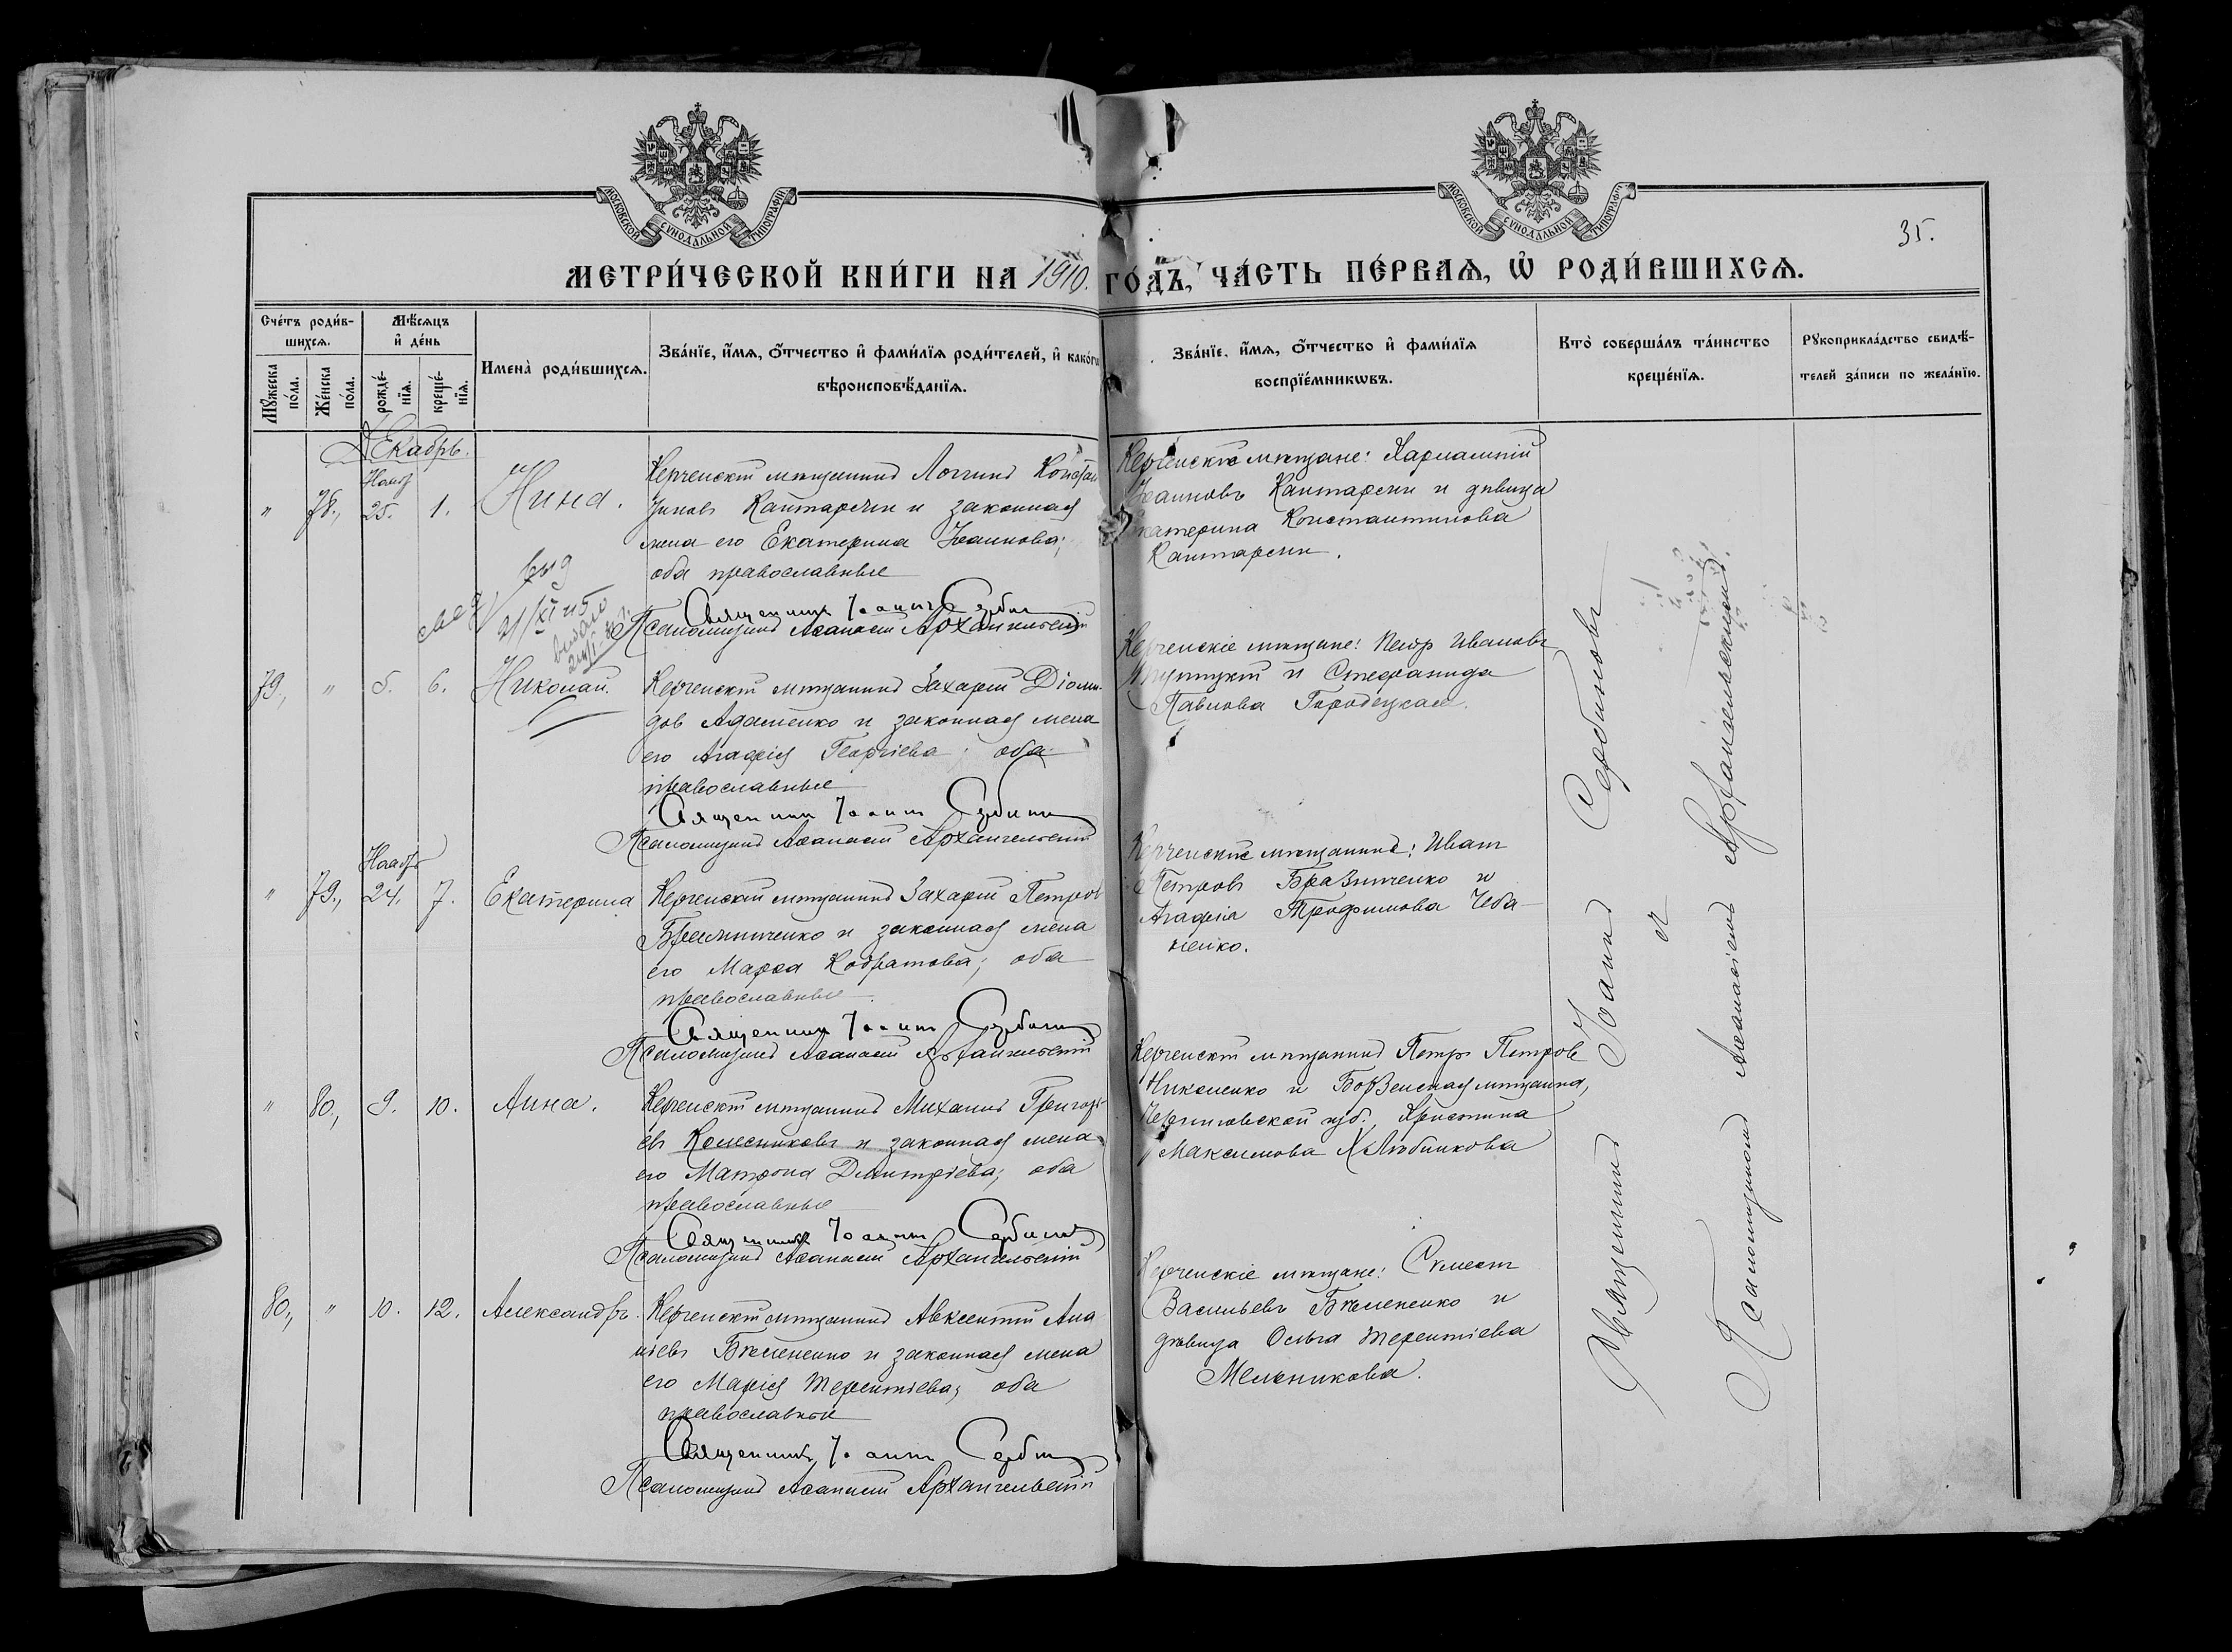 МОСКОВСКОЙ СУНОДАЛЬНОЙ ТИПОГРАФІИ
МОСКОВСКОЙ СУНОДАЛЬНОЙ ТИПОГРАФІИ
35.
МЕТРИ́ЧЕСКОЙ КНИ́ГИ НА 1910. ГО́ДЪ, ЧА́СТЬ ПЕ́РВАѦ, Ѡ҆ РОДИ́ВШИХСѦ.
Сче́тъ роди́в-
шихсѧ.
Мꙋ́жеска
по́ла.
Же́нска
по́ла.
Мѣ́сѧцъ
и҆ де́нь
рожде́-
нїѧ.
креще́-
нїѧ.
Имена̀ роди́вшихсѧ.
Зва́нїе, и҆́мѧ, ѻ҆́тчество и҆ фами́лїѧ роди́телей, и҆ како́гѡ
вѣроисповѣ́данїѧ.
Зва́нїе, и҆́мѧ, ѻ҆́тчество и҆ фами́лїѧ
воспрїе́мникѡвъ.
Кто̀ соверша́лъ та́инство
креще́нїѧ.
Рꙋкоприкла́дство свидѣ́-
телей за́писи по жела́нїю.
Декабрь.
" 78., Нояб 25. 1. Нина.
Керченскій мѣщанинъ Логгинъ Констан
тиновъ Кантарджи и законная
жена его Екатерина Іоаннова;
оба православные
Священникъ Іоаннъ Сербинъ
Псаломщикъ Аѳанасій Архангельскій
Керченскіе мѣщане: Харлампій
Іоанновъ Кантарджи и дѣвица
Екатерина Константинова
Кантарджи.
выд
21/XI 45
79., " 5. 6. Николай.
Керченскій мѣщанинъ Захарій Діоми-
довъ Адаменко и законная жена
его Агафія Георгіева; оба
православные
Священникъ Іоаннъ Сербинъ
Псаломщикъ Аѳанасій Архангельскій
Керченскіе мѣщане: Петръ Ивановъ
и Стефанида
Павлова Городецкая.
" 79., Ноябрь 24. 7. Екатерина
Керченскій мѣщанинъ Захарій Петровъ
и законная жена
его Марѳа Кодратова; оба
православные.
Священникъ Іоаннъ Сербинъ
Псаломщикъ Аѳанасій Архангельскій
Керченскіе мѣщанинъ: Иванъ
Петровъ Бразниченко и
Агафія Трофимова Чеба-
ненко.
" 80., 9. 10. Анна.
Керченскій мѣщанинъ Михаилъ Григорь-
евъ Колесниковъ и законная жена
его Матрона Димитріева; оба
православные
Священникъ Іоаннъ Сербинъ
Псаломщикъ Аѳанасій Архангельскій
Керченскій мѣщанинъ Петръ Петровъ
Николенко и Борзенская мѣщанка,
Черниговской губ. Христина
Максимова
80., " 10. 12. Александръ.
Керченскій мѣщанинъ Авксентій Ана
ніевъ и законная жена
его Марія Терентіева; оба
православные
Священникъ Іоаннъ Сербинъ
Псаломщикъ Аѳанасій Архангельскій
Керченскіе мѣщане:
Васильевъ и
дѣвица Ольга Терентіева
Мельникова.
Священникъ Іоаннъ Сербиновъ
и
Псаломщикъ Аѳанасій Архангельскій.